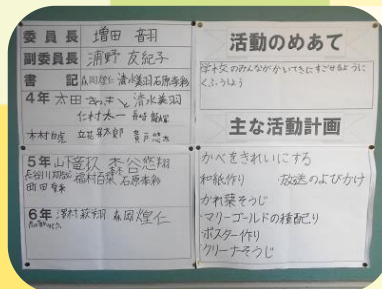 委員長 増田 音羽
副委員長 浦野 友紀子
書記 森岡煌仁 清水美羽 石原孝彩
4年 太田 さつき 清水美羽
仁村 太一
木村
5年 山下竜玖 森谷悠翔
長谷川 福村百葉 石原孝彩
6年 澤村萩翔 森岡煌仁
活動のめあて
学校のみんながかいてきにすごせるように
くふうしよう
主な活動計画
かべをきれいにする
和紙作り 放送のよびかけ
かれ葉そうじ
・マリーゴールドの種配り
・ポスター作り
・クリーナーそうじ